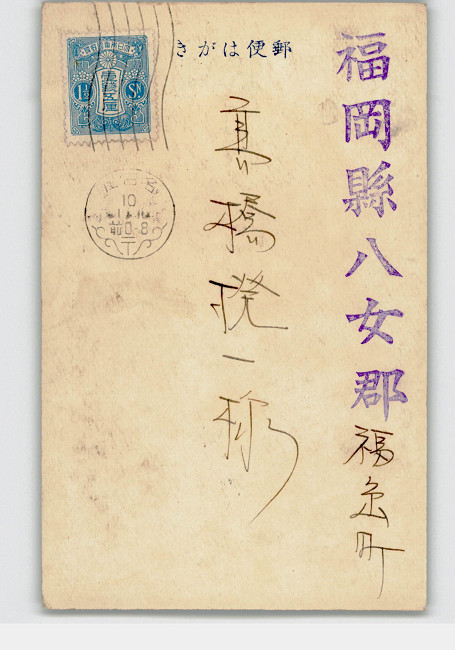 郵便はがき
福岡縣八女郡福島町
高橋 一様
壹錢五厘
1½ Sn
10
前0-8